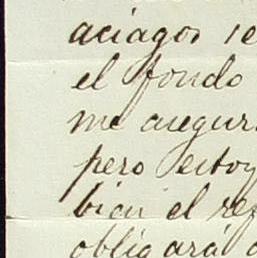 aciagos se
el fondo
me asegur
pero estoy
bien el ref
obligará a